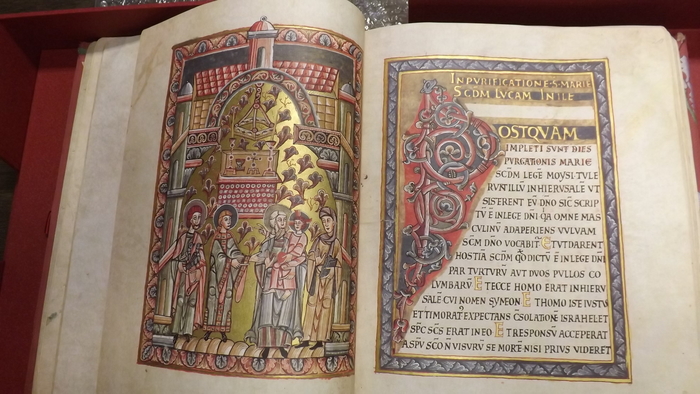 INPURIFICATIONE S MARIE
SCDM LVCAM IN ILE
POSTQVAM
IMPLETI SVNT DIES
PVRGATIONIS MARIE
SCDM LEGĒ MOYSI TVLE
RVNT ILLV̄ IN HIERVSALĒ VT
SISTERENT EV̄ DNO SIC̄ SCRIP
TV̄ E IN LEGE DNI QA OMNE MAS
CVLINV̄ ADAPERIENS VVLVAM
SCM DNO VOCABIT ET VT DARENT
HOSTIA SCDM QD DICTV̄ E IN LEGE DNI
PAR TVRTVRV̄ AVT DVOS PVLLOS CO
LVMBARV̄ ET ECCE HOMO ERAT IN HIERV
SALĒ CVI NOMEN SYMEON ET HOMO ISTE IVSTVS
ET TIMORAT EXPECTANS C̄SOLATIONĒ ISRAHEL ET
SPC̄ SC̄S ERAT IN EO ET RESPONSV̄ ACCEPERAT
A SPV̄ SCO N̄ VISVRV̄ SE MORTĒ NISI PRIVS VIDERET